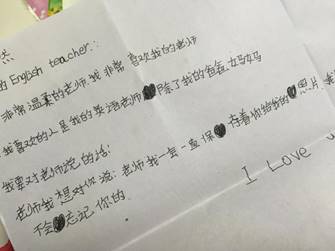 的English teacher:
非常温柔的老师.我非常喜欢我的老师
我喜欢的人是我的英语老师除了我的爸爸,妈妈
我要对老师说的话:
老师我想对你说:老师我一定一直保存着你给我的照片,我
不会忘记你的.
I Love